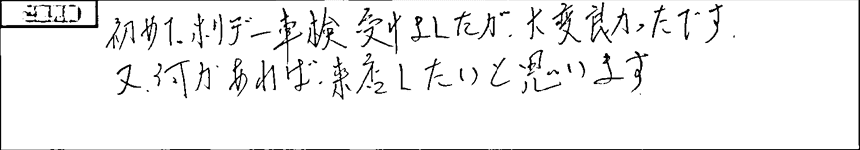 初めて、ホリデー車検受けましたが、大変良かったです.
又、何かあれば、来店したいと思います